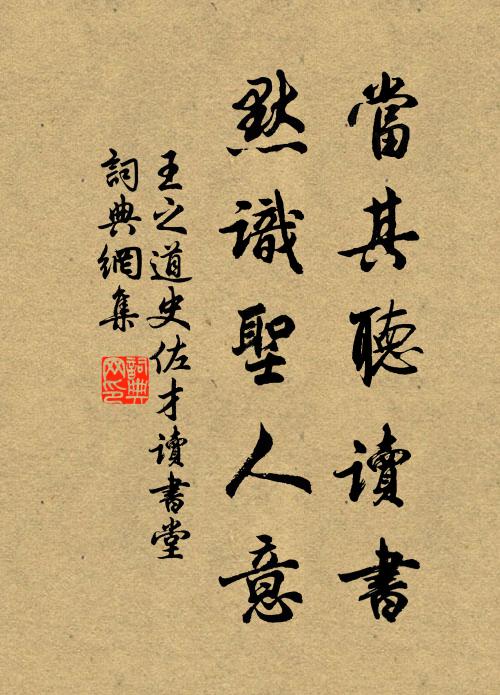 當其聽讀書
默識聖人意
王之道史佐才讀書堂
詞典網集
詞典網印